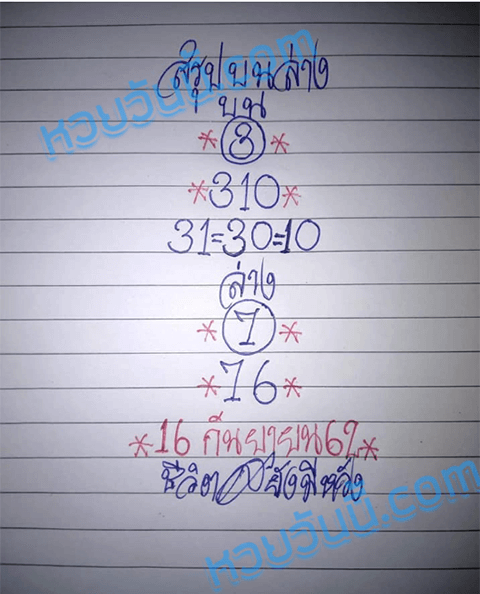 สรุปบนล่าง
บน
*3*
*310*
31=30=10
ล่าง
*7*
*76*
*16 กันยายน67*
ชีวิตยังมีหวัง
หวยวันนี้.com
หวยวันนี้.com